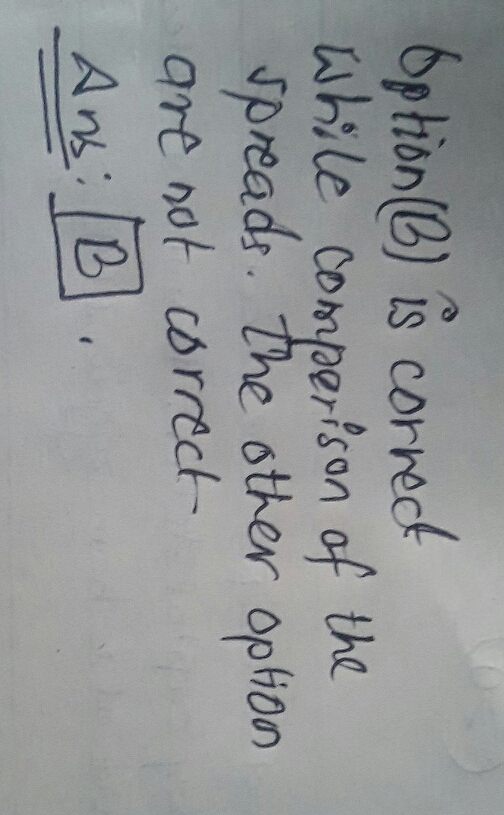 Option (B) is correct
while comperison of the
spreads. The other option
are not correct
Ans: B.